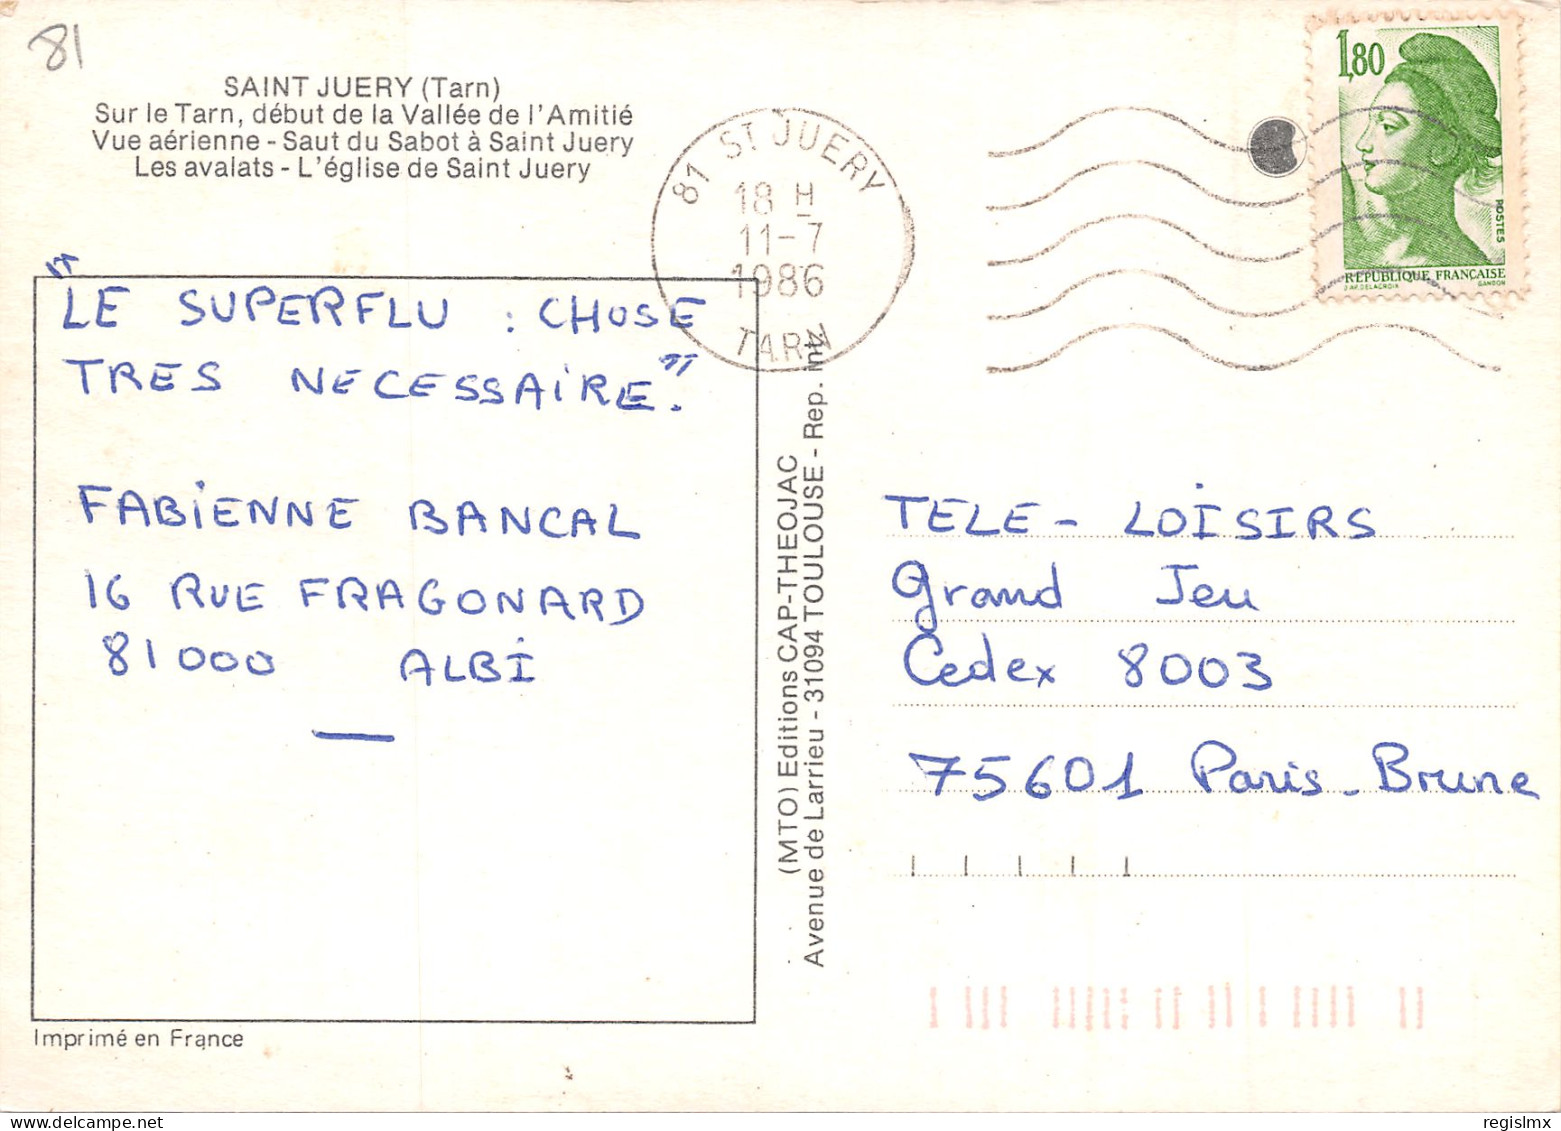 81
SAINT JUERY (Tarn)
Sur le Tarn, début de la Vallée de l'Amitié
Vue aérienne - Saut du Sabot à Saint Juery
Les avalats - L'église de Saint Juery
81 ST JUERY
18 H
11-7
1986
TARN
1,80
POSTES
RÉPUBLIQUE FRANÇAISE
D'AP. DELACROIX GANDON
"LE SUPERFLU : CHOSE
TRES NECESSAIRE".
FABIENNE BANCAL
16 RUE FRAGONARD
81000 ALBI
(MTO) Editions CAP-THEOJAC
Avenue de Larrieu - 31094 TOULOUSE - Rep. Int.
TELE - LOISIRS
Grand Jeu
Cedex 8003
75601 Paris-Brune
Imprimé en France
regislmx